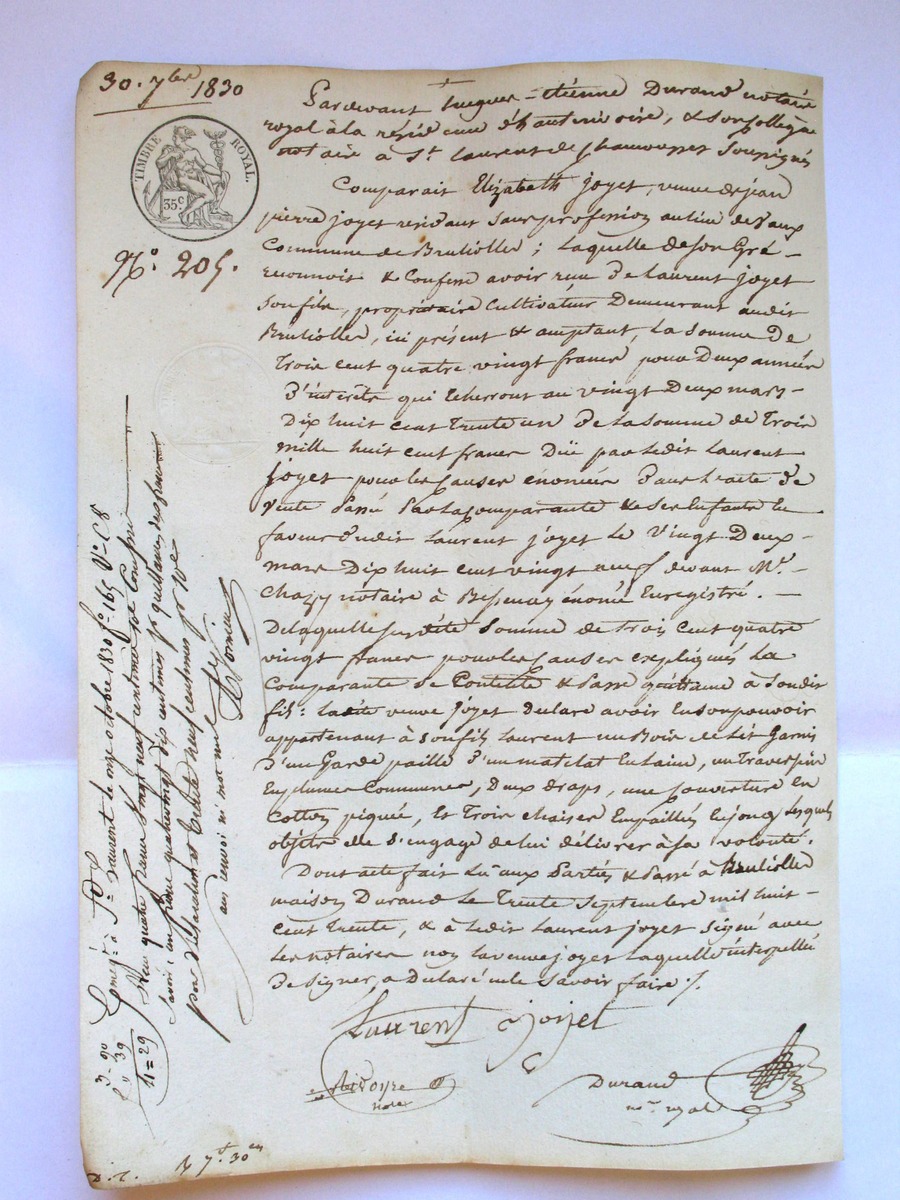 30. 7bre 1830
TIMBRE ROYAL.
35c
No. 205.
Pardevant hugues-étienne Durand notaire
royal à la résidence d'hauterivoire, & son collègue
notaire à St. Laurent de chamousset soussignés
Comparait Elizabeth joyet, veuve de jean
pierre joyet rentière sans profession au lieu de vaux
Commune de Brullioles; laquelle de son Gré
reconnoit & Confesse avoir reçu de Laurent joyet
son fils, propriétaire Cultivateur Demeurant audit
Brullioles, ici présent & acceptant, La somme De
Trois cent quatre vingt francs pour Deux années
D'intérêts qui Echerront au vingt Deux mars
Dix huit cent trente un De la somme de Trois
mille huit cent francs Düe par ledit Laurent
joyet pour les Causes énoncées Dans l'acte De
vente Passé Par la Comparante & ses Enfants En
faveur Dudit Laurent joyet Le Vingt Deux
mars Dix huit cent vingt neuf devant Me.
Chazy notaire à Bessenay énoncé Enregistré.
De laquelle susdite somme de trois cent quatre
vingt francs pour les Causes expliquées La
Comparante se Contente & Passe quittance à son dit
fils: Ladite veuve joyet Declare avoir En son pouvoir
appartenant à son fils Laurent un Bois de Lit Garni
D'un Garde paille D'un matelat En laine, un Traversin
En plumes Communes, Deux draps, une Couverture En
Cotton piquée, Et Trois chaises Empaillées En jonc, Lesquels
objets elle s'engage de lui délivrer à sa volonté.
Dont acte fait Lû aux Parties & Passé à Brullioles
maison Durand Le Trente Septembre mil huit
cent Trente, & à Ledit Laurent joyet signé avec
Les notaires non La veuve joyet Laquelle interpellée
De signer, a Déclaré ne le savoir faire ./.
Laurent joyet
Durand
nre. royal
Enregé. à St. Laurent le onze octobre 1830 fo. 165 Vo. C8
Reçu quatre francs vingt neuf centimes
savoir: un franc quatre vingt dix centimes pr quittance
pour déclaration et trente neuf centimes pr 10e
3-90
" 39
4=29
30